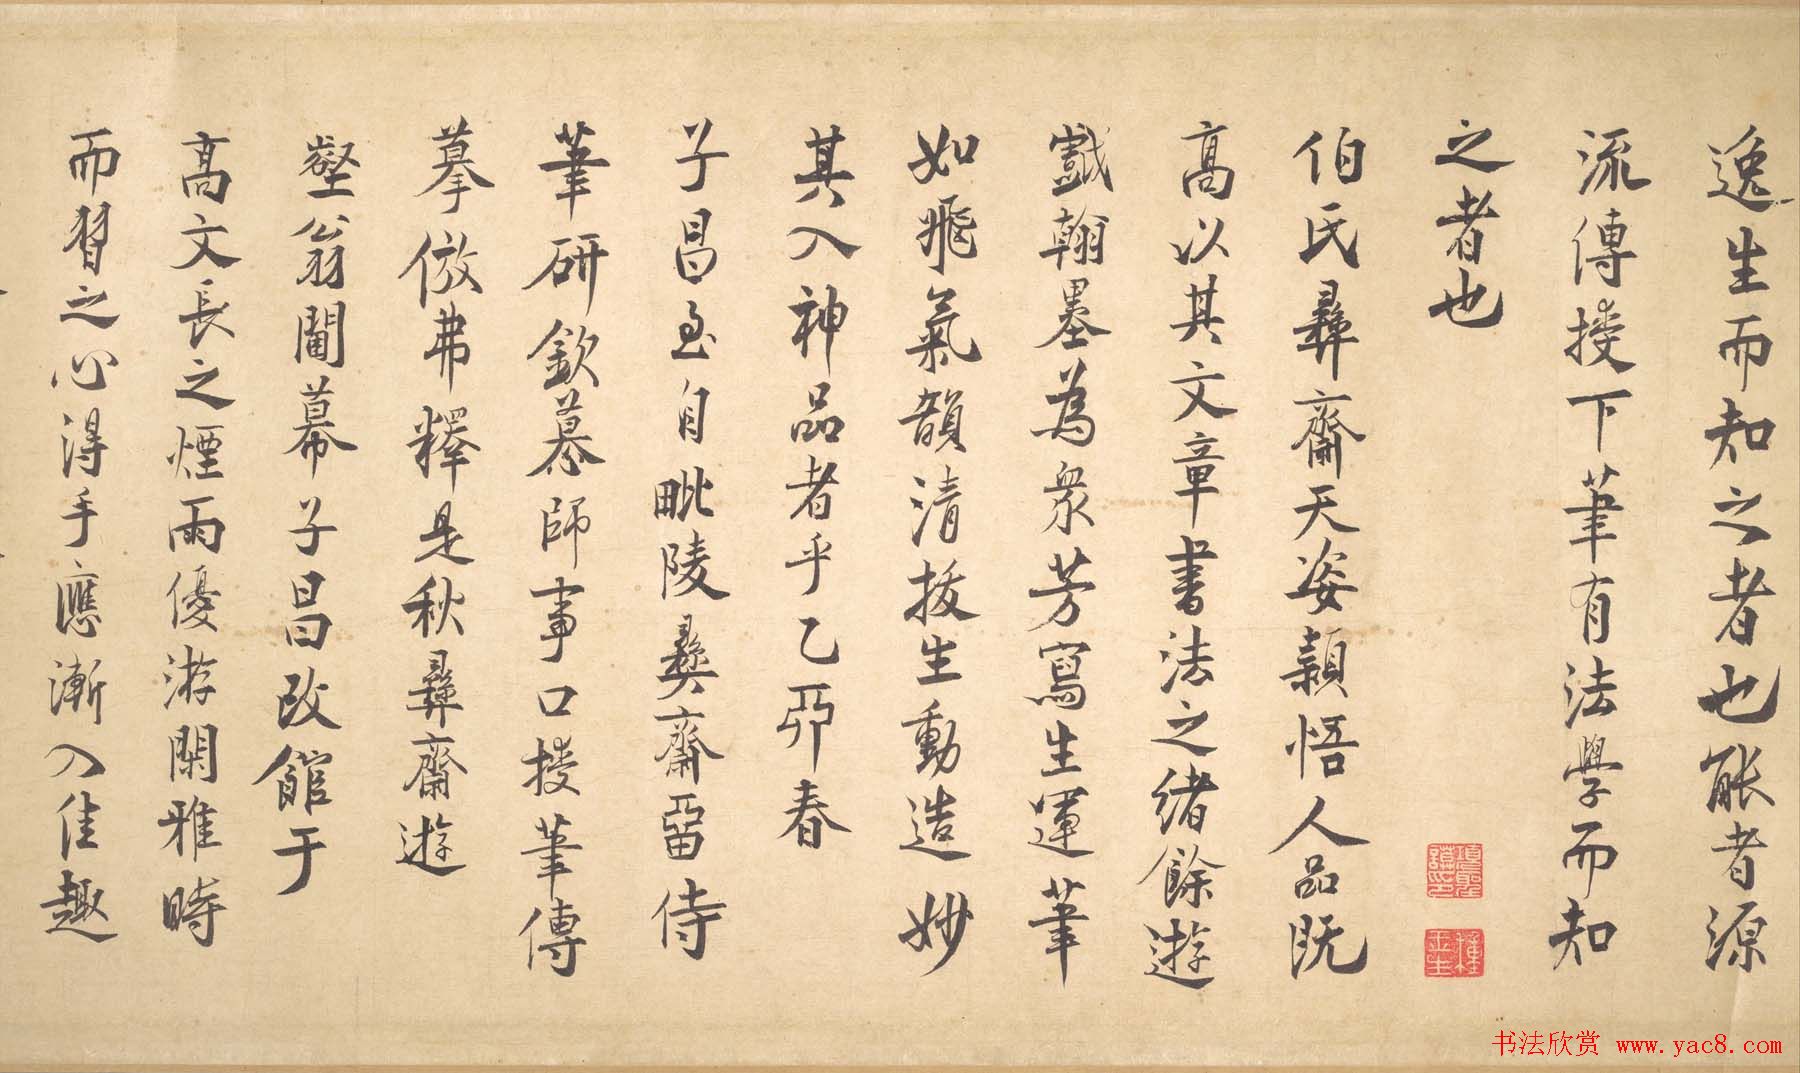 逸生而知之者也能者源
流傳授下筆有法學而知
之者也
伯氏彝齋天姿穎悟人品既
高以其文章書法之緒餘遊
戲翰墨為衆芳寫生運筆
如飛氣韻清拔生動造妙
其入神品者乎乙卯春
子昌至自毗陵彝齋留侍
筆研欽慕師事口授筆傳
摹倣弗釋是秋彝齋遊
壑翁閫幕子昌改館于
高文長之煙雨優游閑雅時
而習之心得手應漸入佳趣
书法欣赏 www.yac8.com